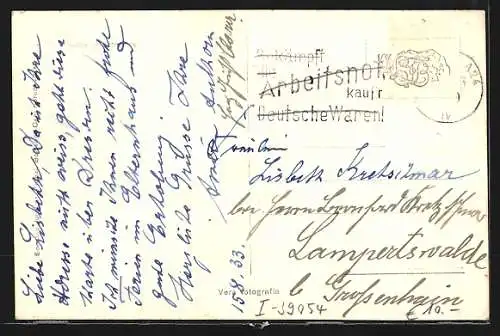 Liebe Lisbeth, Da ich Ihre
Adresse nicht weiss, geht diese
Karte über Dresden.
Ich wünsche Ihnen recht frohe
Ferien im Elternhaus und
gute Erholung
Herzliche Grüsse Ihre
15.4.33.
Bekämpft
die
Arbeitsnot
kauft
Deutsche Waren!
Fräulein
Lisbeth Kretschmar
bei Herrn Bernhard Kretzschmar
Lampertswalde
b Großenhain
Vera Fotografia
I-39054
€10.-